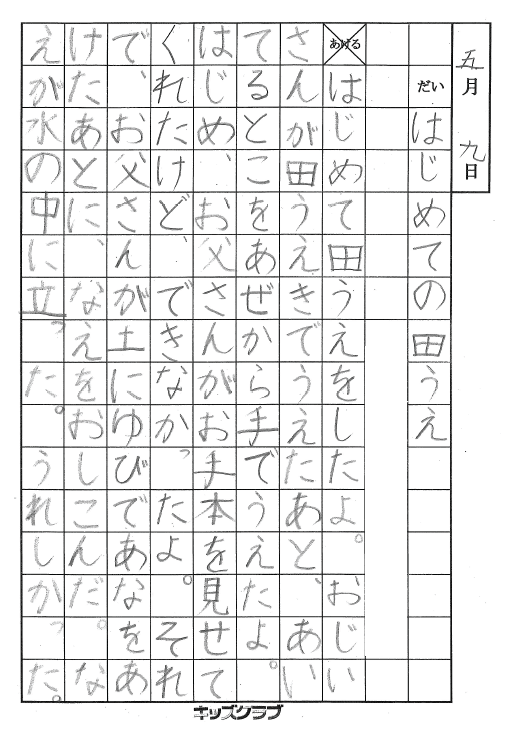 五月九日
だい はじめての田うえ
あげる はじめて田うえをしたよ。おじい
さんが田うえきでうえたあと、あい
てるとこをあぜから手でうえたよ。
はじめ、お父さんがお手本を見せて
くれたけど、できなかったよ。それ
で、お父さんが土にゆびであなをあ
けたあとに、なえをおしこんだ。な
えが水の中に立った。うれしかった。
キッズクラブ